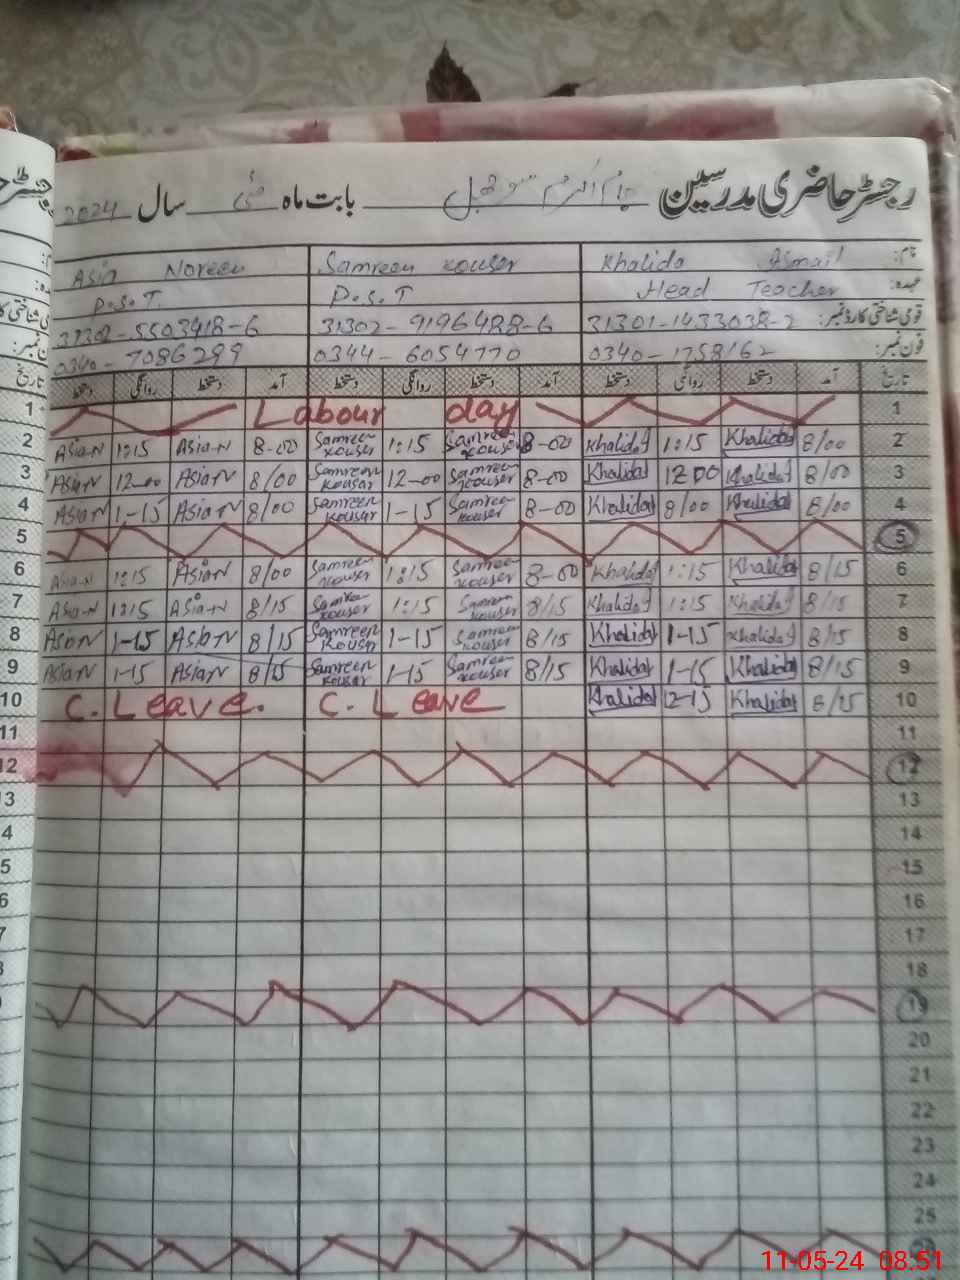 رجسٹر حاضری مدرسین بابت ماہ مئی سال 2024
نام: Khalida Asmail Samreen Kouser Asia Noreen
عہدہ: Head Teacher P.S.T P.S.T.
قومی شناختی کارڈ نمبر: 31301-1433038-2 31302-9196488-6 31302-5503418-6
فون نمبر: 0340-1758162 0344-6054770 0340-7086299
تاریخ آمد دستخط روانگی دستخط آمد دستخط روانگی دستخط آمد دستخط روانگی دستخط تاریخ
1 Labour day 1
2 Asia-N 1:15 Asia-N 8-00 Samreen Kouser 1:15 Samreen Kouser 8-00 Khalida 1:15 Khalida 8/00 2
3 Asian 12-00 Asian 8/00 Samreen Kousar 12-00 Samreen Kouser 8-00 Khalida 1200 Khalida 8/00 3
4 Asian 1-15 Asian 8/00 Samreen Kouser 1-15 Samreen Kouser 8-00 Khalida 8/00 Khalida 8/00 4
5 5
6 Asia-N 1:15 Asian 8/00 Samreen Kouser 1:15 Samreen Kouser 8-00 Khalida 1:15 Khalida 8/15 6
7 Asia-N 1:15 Asia-N 8/15 Samreen Kouser 1:15 Samreen Kouser 8/15 Khalida 1:15 Khalida 8/15 7
8 Asian 1-15 Asian 8/15 Samreen Kousar 1-15 Samreen Kouser 8/15 Khalida 1-15 Khalida 8/15 8
9 Asian 1-15 Asian 8/15 Samreen Kouser 1-15 Samreen Kouser 8/15 Khalida 1-15 Khalida 8/15 9
10 C. Leave. C. Leave Khalida 12-15 Khalida 8/15 10
11 11
12 12
13 13
4 14
5 15
6 16
7 17
8 18
19
20
21
22
23
24
25
11-05-24 08.51